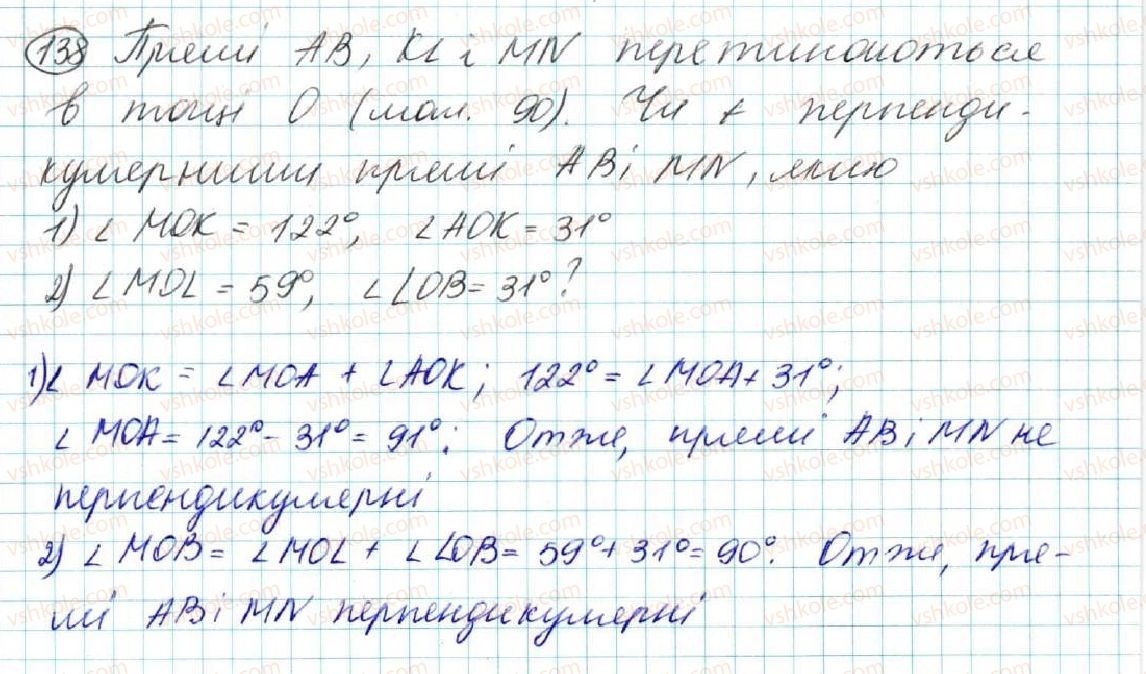 138 Прямі AB, KL і MN перетинаються
в точці O (мал. 90). Чи є перпенди-
кулярними прямі AB і MN, якщо
1) ∠ MOK = 122°, ∠AOK = 31°
2) ∠ MOL = 59°, ∠ LOB = 31°?
1) ∠ MOK = ∠MOA + ∠AOK; 122° = ∠MOA + 31°;
∠ MOA = 122° - 31° = 91°; Отже, прямі AB і MN не
перпендикулярні
2) ∠ MOB = ∠MOL + ∠LOB = 59° + 31° = 90°. Отже, пря-
мі AB і MN перпендикулярні